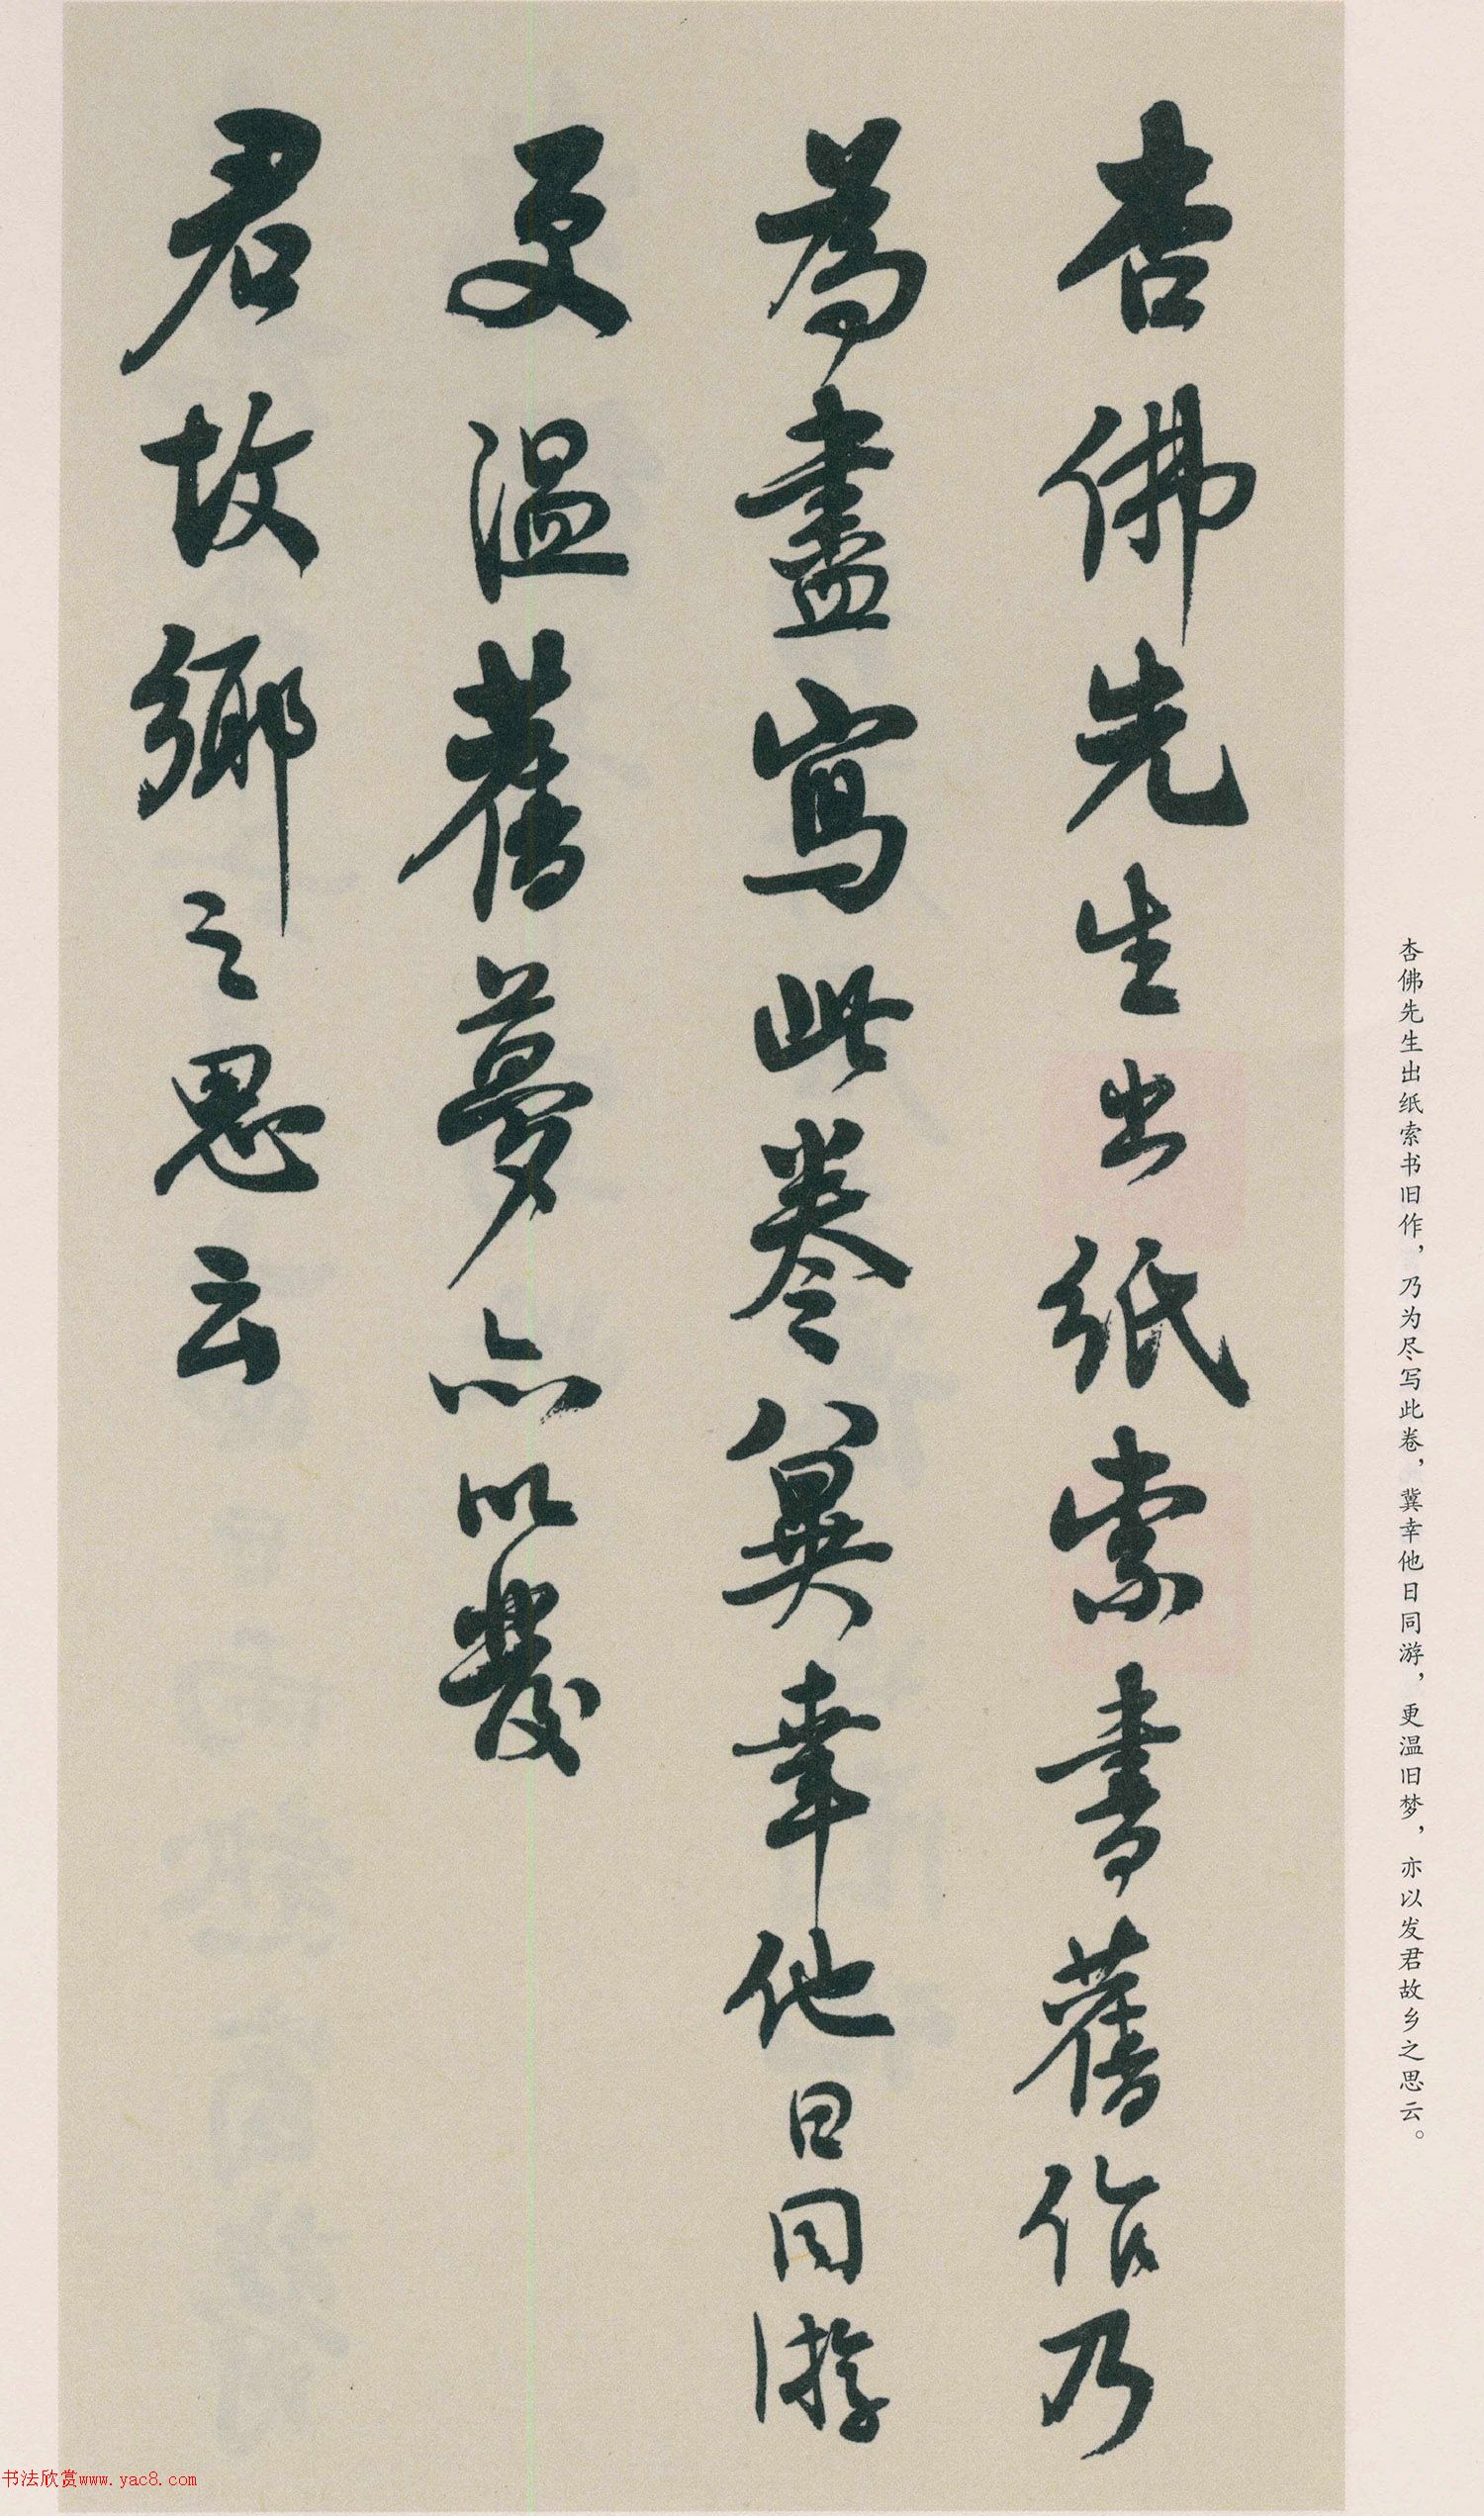 杏佛先生出纸索书旧作，乃为尽写此卷，冀幸他日同游，更温旧梦，亦以发君故乡之思云。
杏佛先生出紙索書舊作乃
為盡寫此卷冀幸他日同游
更温舊夢亦以發
君故鄉之思云
书法欣赏www.yac8.com